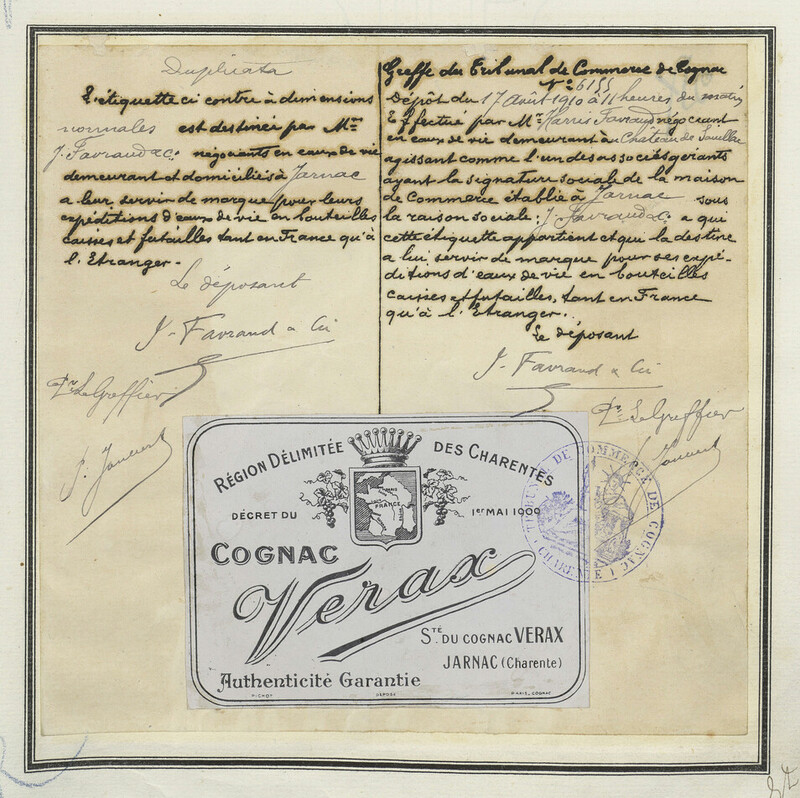 Duplicata
L'étiquette ci contre à dimensions
normales est destinée par Mrs
J. Favraud & Co. négociants en eaux de vie
demeurant et domiciliés à Jarnac
a leur servir de marque pour leurs
expéditions d'eaux de vie en bouteilles
caisses et futailles tant en France qu'à
l'Etranger.
Le déposant
J. Favraud & Cie
Pr Le Greffier
Greffe du Tribunal de Commerce de Cognac
No 6155
Dépôt du 17 Août 1910 à 11 heures du matin
Effectué par Mr Favraud négociant
en eaux de vie demeurant à Château de Souillac
agissant comme l'un des associés gérants
ayant la signature sociale de la maison
de Commerce établie à Jarnac sous
la raison sociale: J. Favraud & Co. a qui
cette étiquette appartient et qui la destine
a lui servir de marque pour ses expé-
ditions d'eaux de vie en bouteilles
caisses et futailles, tant en France
qu'à l'Etranger.
Le déposant
J. Favraud & Cie
Pr Le Greffier
RÉGION DÉLIMITÉE DES CHARENTES
FRANCE
DÉCRET DU 1er MAI 1909
COGNAC
Verax
STÉ DU COGNAC VERAX
JARNAC (Charente)
Authenticité Garantie
DÉPOSÉ
TRIBUNAL DE COMMERCE DE COGNAC
(CHARENTE)